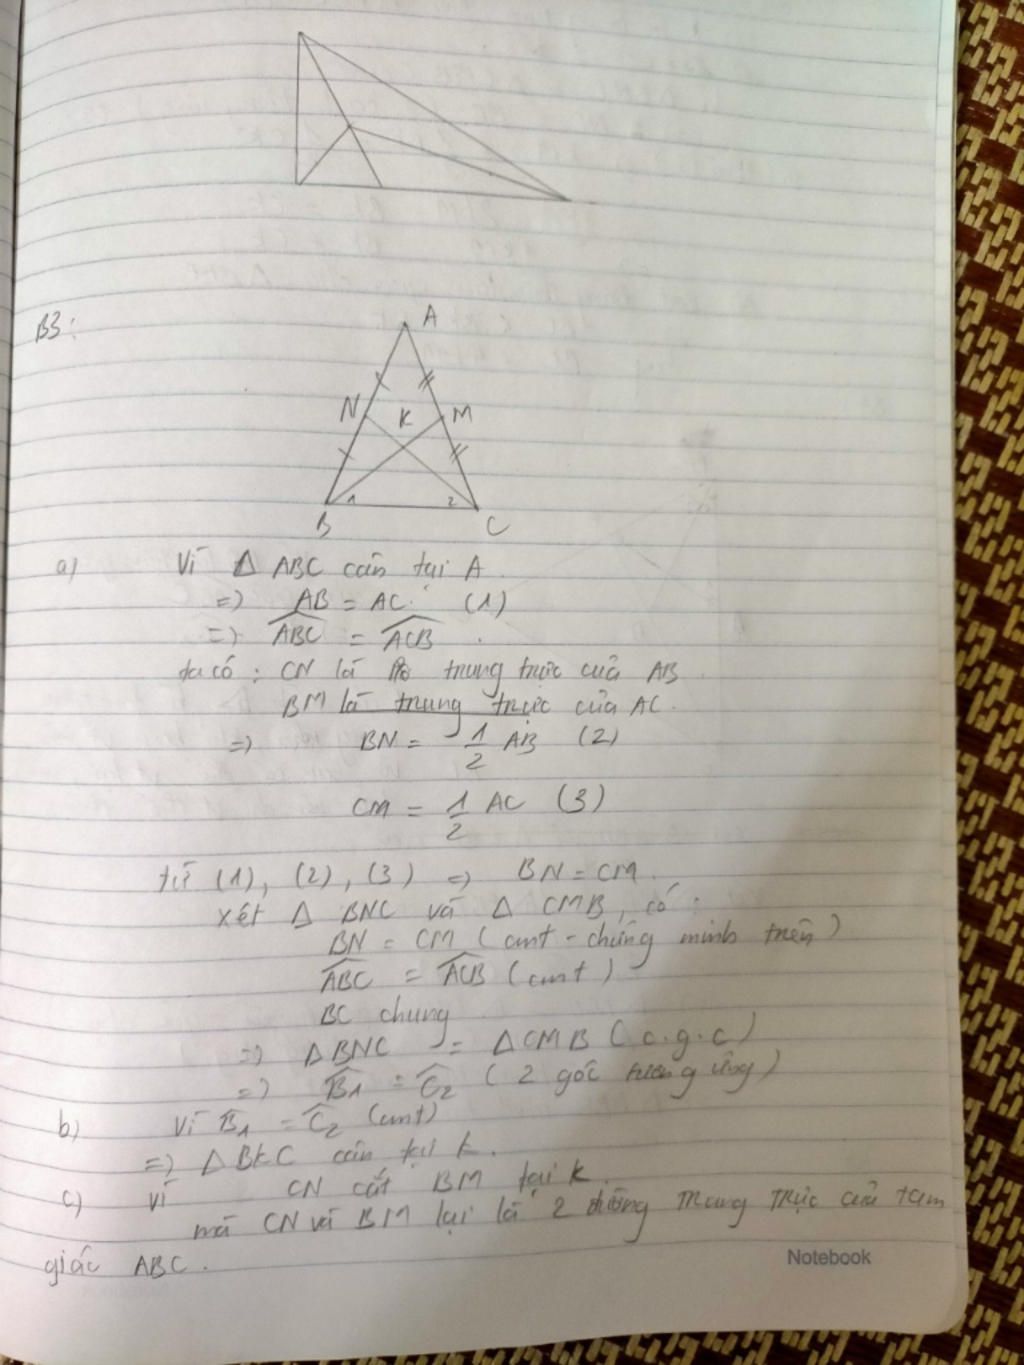 B3:
A
N K M
1 2
B C
a) Vì Δ ABC cân tại A
=) AB = AC. (1)
=) ABC = ACB.
ta có: CN là trung trực của AB.
BM là trung trực của AC.
=) BN = 1/2 AB (2)
CM = 1/2 AC (3)
từ (1), (2), (3) =) BN = CM.
xét Δ BNC và Δ CMB, có:
BN = CM (cmt - chứng minh trên)
ABC = ACB (cmt)
BC chung
=) Δ BNC = Δ CMB (c.g.c)
=) B1 = C2 (2 góc tương ứng)
b) Vì B1 = C2 (cmt)
=) Δ BKC cân tại K.
c) Vì CN cắt BM tại K.
mà CN và BM lại là 2 đường trung trực của tam
giác ABC.
Notebook